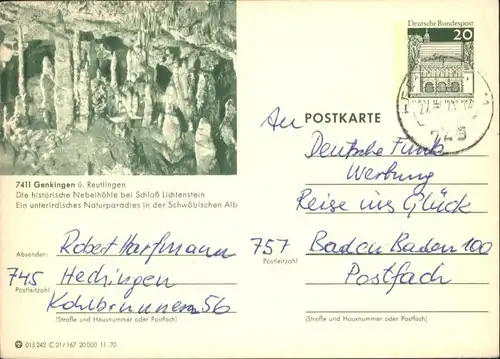 Deutsche Bundespost
20
7411 Genkingen ü. Reutlingen
Die historische Nebelhöhle bei Schloß Lichtenstein
Ein unterirdisches Naturparadies in der Schwäbischen Alb
POSTKARTE
An
Deutsche Funk
Werbung
Reise ins Glück
757 Baden Baden 100
Postleitzahl
Postfach
(Straße und Hausnummer oder Postfach)
Absender: Robert Harfmann
745 Hechingen
Postleitzahl
56
(Straße und Hausnummer oder Postfach)
015 242 C 21/167 20 000 11.70
745